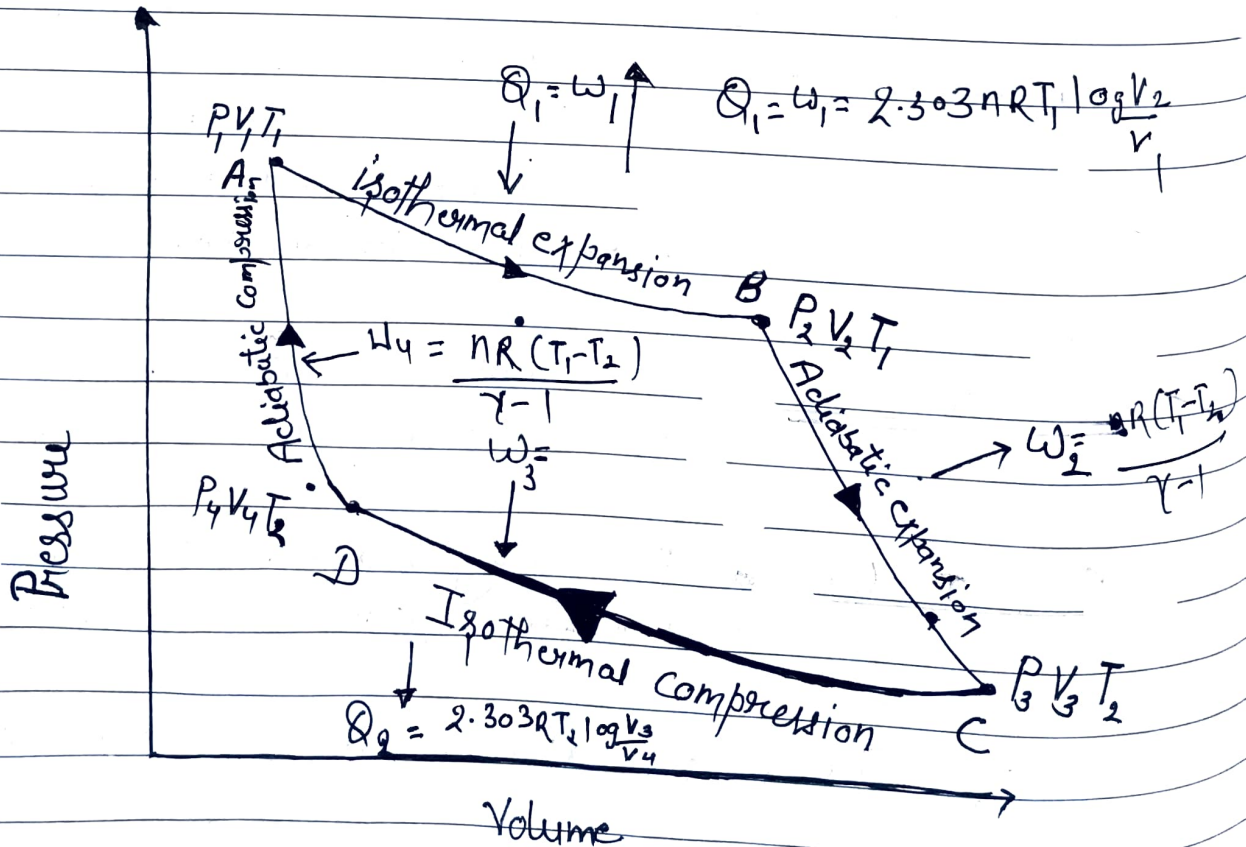 Q₁ = W₁
Q₁ = W₁ = 2.303 nRT₁ log V₂/V₁
P₁V₁T₁
A
isothermal expansion
B
P₂ V₂ T₁
Adiabatic Compression
W₄ = nR(T₁-T₂)/γ-1
Adiabatic expansion
W₂ = nR(T₁-T₂)/γ-1
W₃=
P₄V₄T₂
D
Pressure
Isothermal Compression
P₃ V₃ T₂
C
Q₂ = 2.303RT₂ log V₃/V₄
Volume